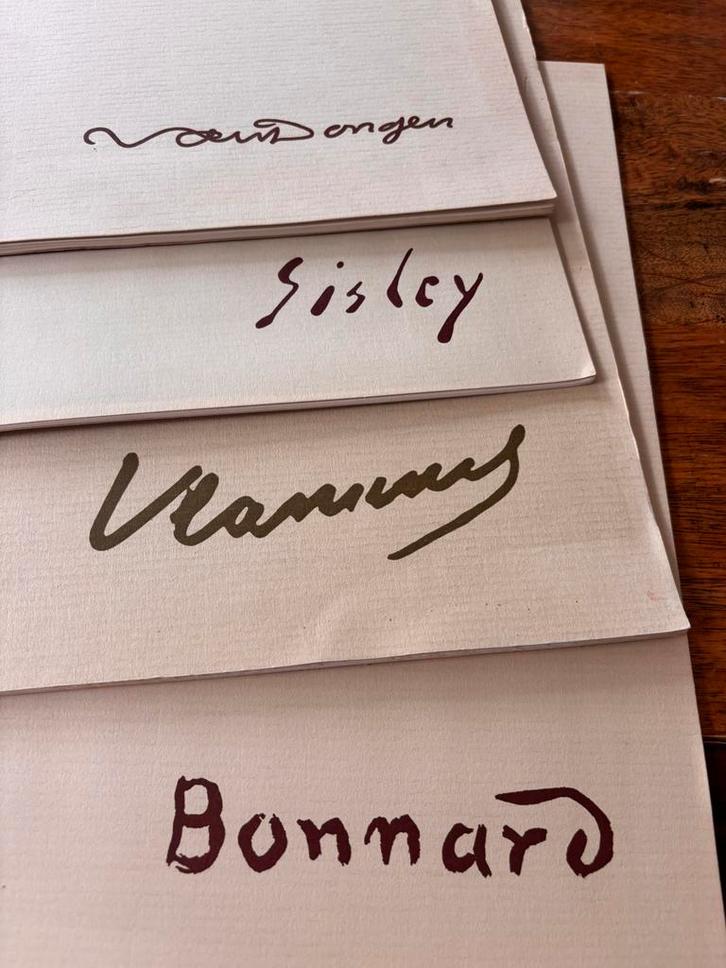 Van Dongen
Sisley
Vlaminck
Bonnard